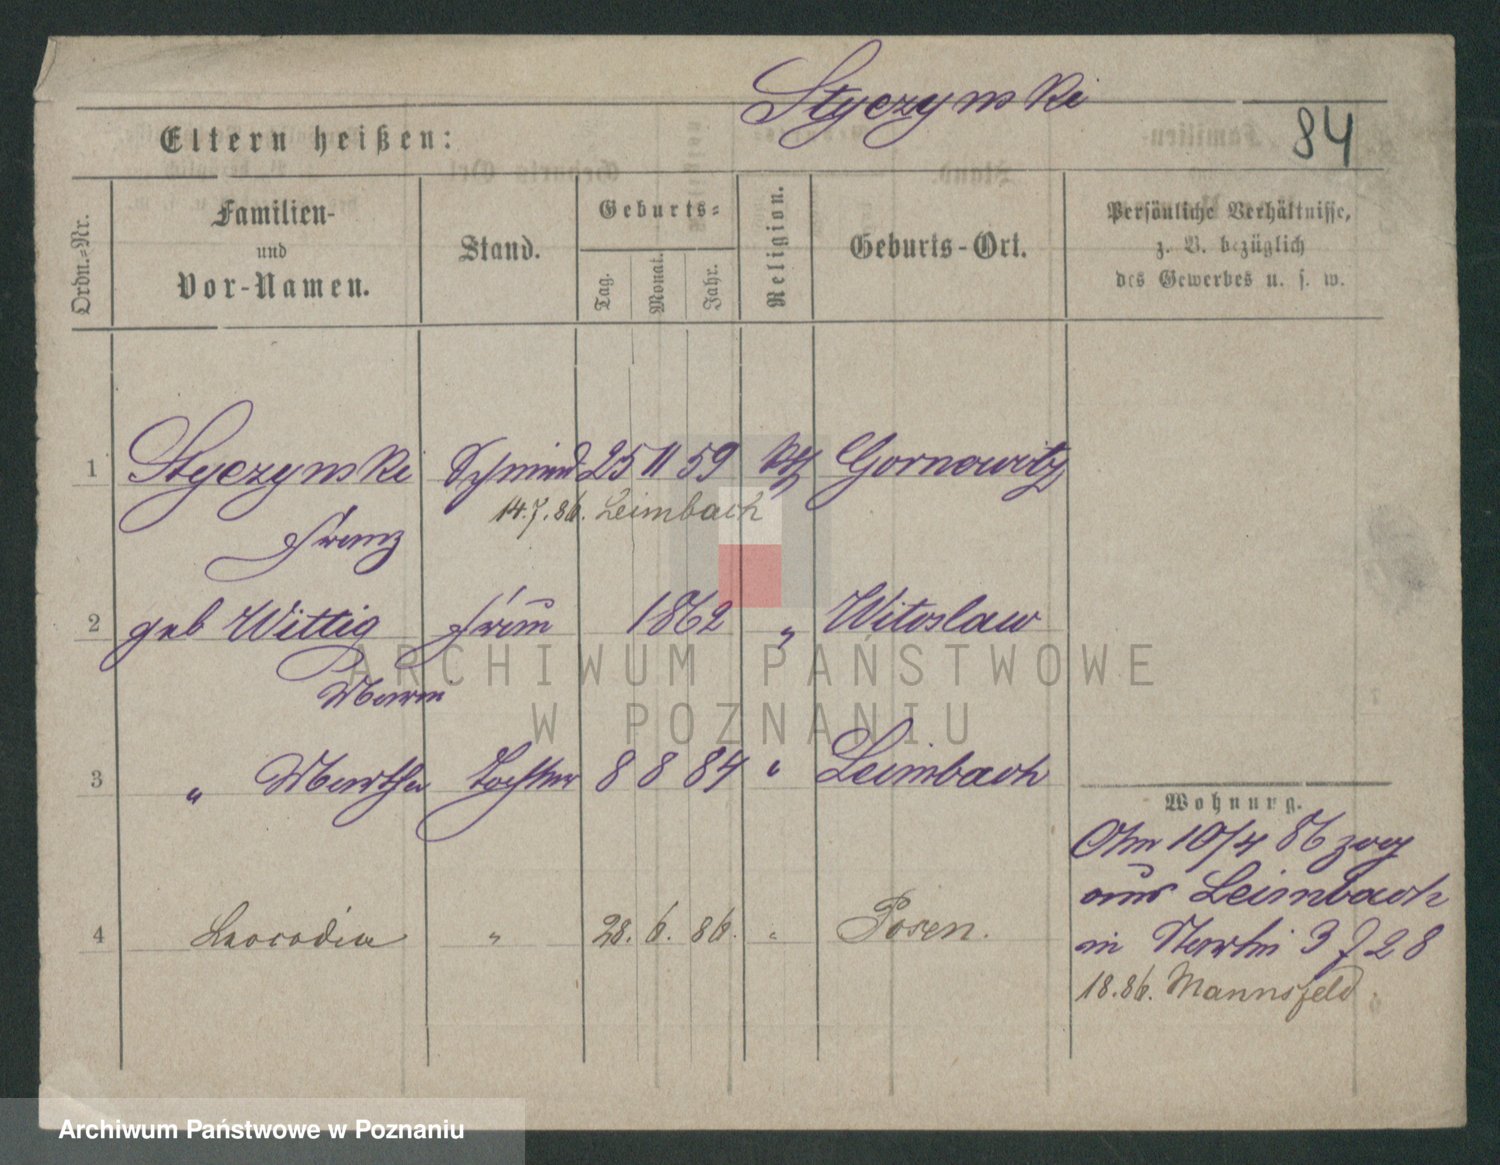 Styczynski
84
Eltern heißen:
Ordn.-Nr.
Familien-
und
Vor-Namen.
Stand.
Geburts-
Tag.
Monat.
Jahr.
Religion.
Geburts-Ort.
Persönliche Verhältnisse,
z. B. bezüglich
des Gewerbes u. s. w.
1 Styczynski Schmied 25 11 59 kth Gornowitz
14.7.86. Leimbach
Franz
2 geb Wittig Frau 1862 " Witoslaw
Maria
3 " Martha Tochter 8 8 84 " Leimbach
Wohnung.
Am 10/4 86 zog
aus Leimbach
in Martin 3 f 28
4 Leocodia " 28. 6. 86. " Posen.
18.86. Mannsfeld.
ARCHIWUM PAŃSTWOWE
W POZNANIU
Archiwum Państwowe w Poznaniu